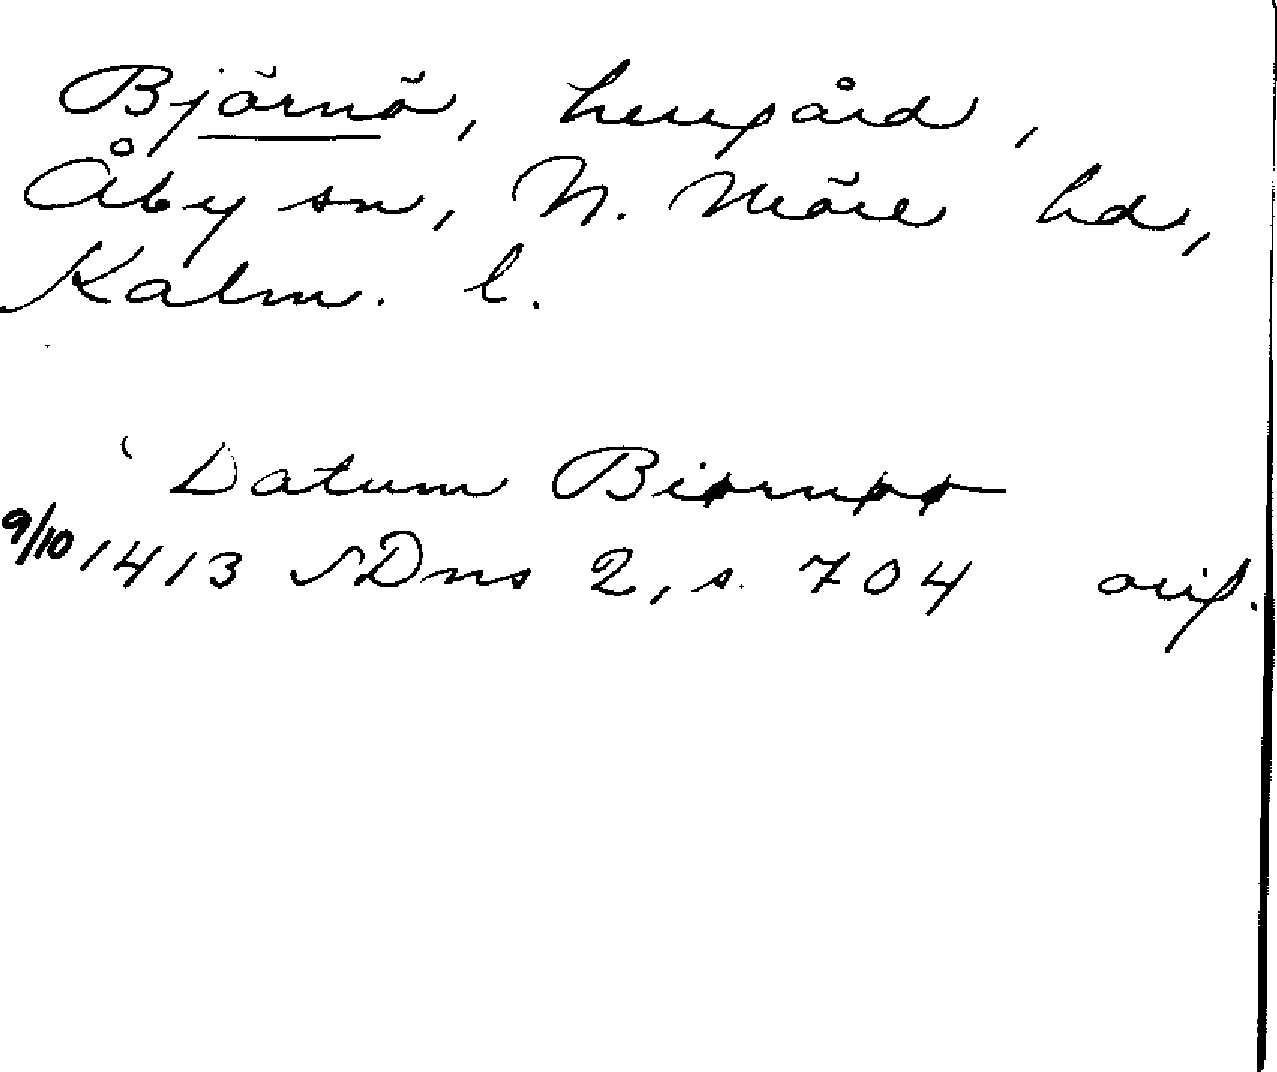 Björnö, herrgård,
Åby sn, N. Möre hd,
Kalm. l.
Datum Biørnøø
9/10 1413 SDns 2, s. 704 orig.